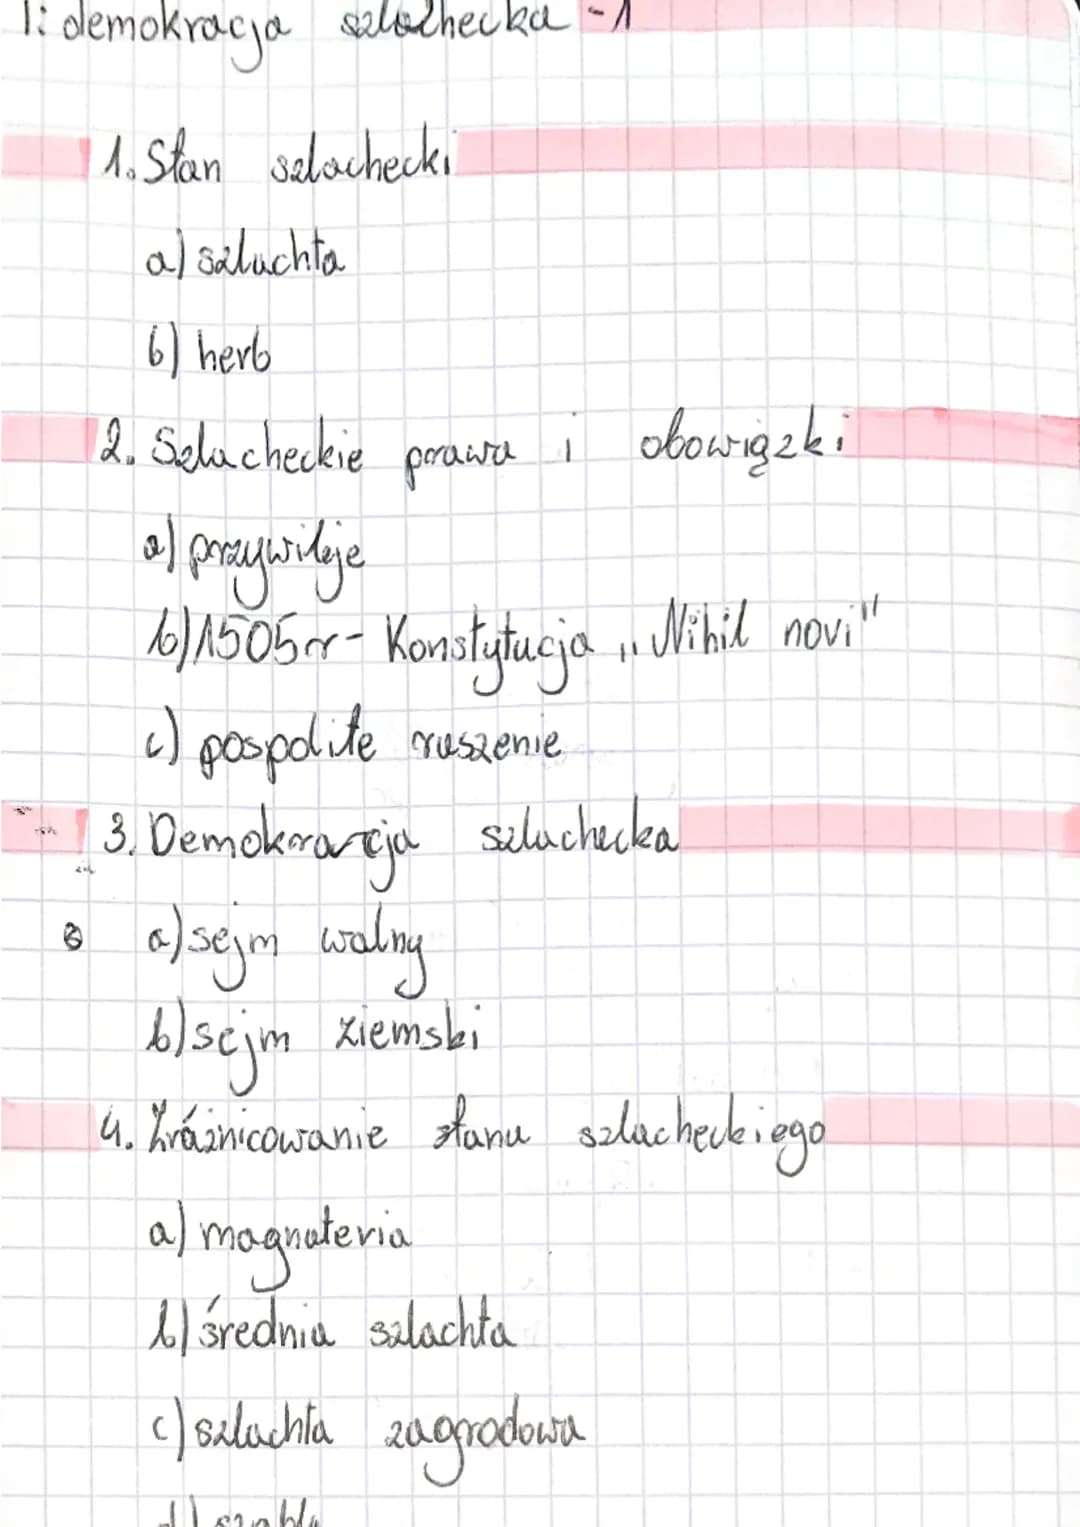 T: demokracja szlachecka - 1
1. Stan szlachecki
a) szlachta
b) herb
2. Szlacheckie prawa i obowiązki
a) przywileje
b) 1505r - Konstytucja „Nihil novi"
c) pospolite ruszenie
3. Demokracja szlachecka
a) sejm walny
b) sejm ziemski
4. Zróżnicowanie stanu szlacheckiego
a) magnateria
b) średnia szlachta
c) szlachta zagrodowa